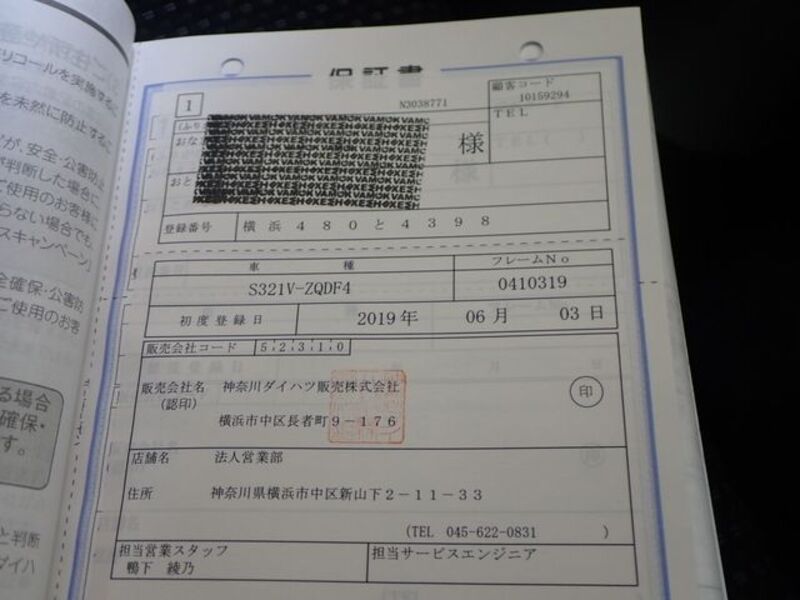 保証書
1
N3038771
顧客コード
10159294
TEL
様
登録番号 横浜480と4398
車種
フレームNo
S321V-ZQDF4
0410319
初度登録日 2019年 06月 03日
販売会社コード 52310
販売会社名 神奈川ダイハツ販売株式会社
(認印)
印
横浜市中区長者町9-176
店舗名 法人営業部
住所 神奈川県横浜市中区新山下2-11-33
(TEL 045-622-0831 )
担当営業スタッフ
鴨下 綾乃
担当サービスエンジニア
リコールを実施する
を未然に防止する
が、安全・公害防止
が判断した場合に
ご使用のお客様に
らない場合でも、
スキャンペーン」
全確保・公害防
ご使用のお客
る場合
確保・
す。
と判断
ダイハ